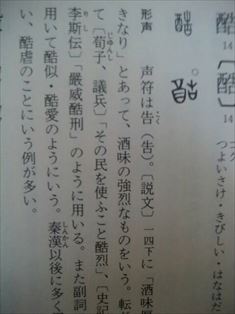 酷〔酷〕14 14 つよいさけ・きびしい・はなはだ
形声 声符は告(告)。〔説文〕一四下に「酒味厚
きなり」とあって、酒味の強烈なものをいう。転
て〔荀子、議兵〕「その民を使ふこと酷烈」、〔史記
李斯伝〕「嚴威酷刑」のように用いる。また副詞
用いて酷似・酷愛のようにいう。秦漢以後に多く
い、酷虐のことにいう例が多い。